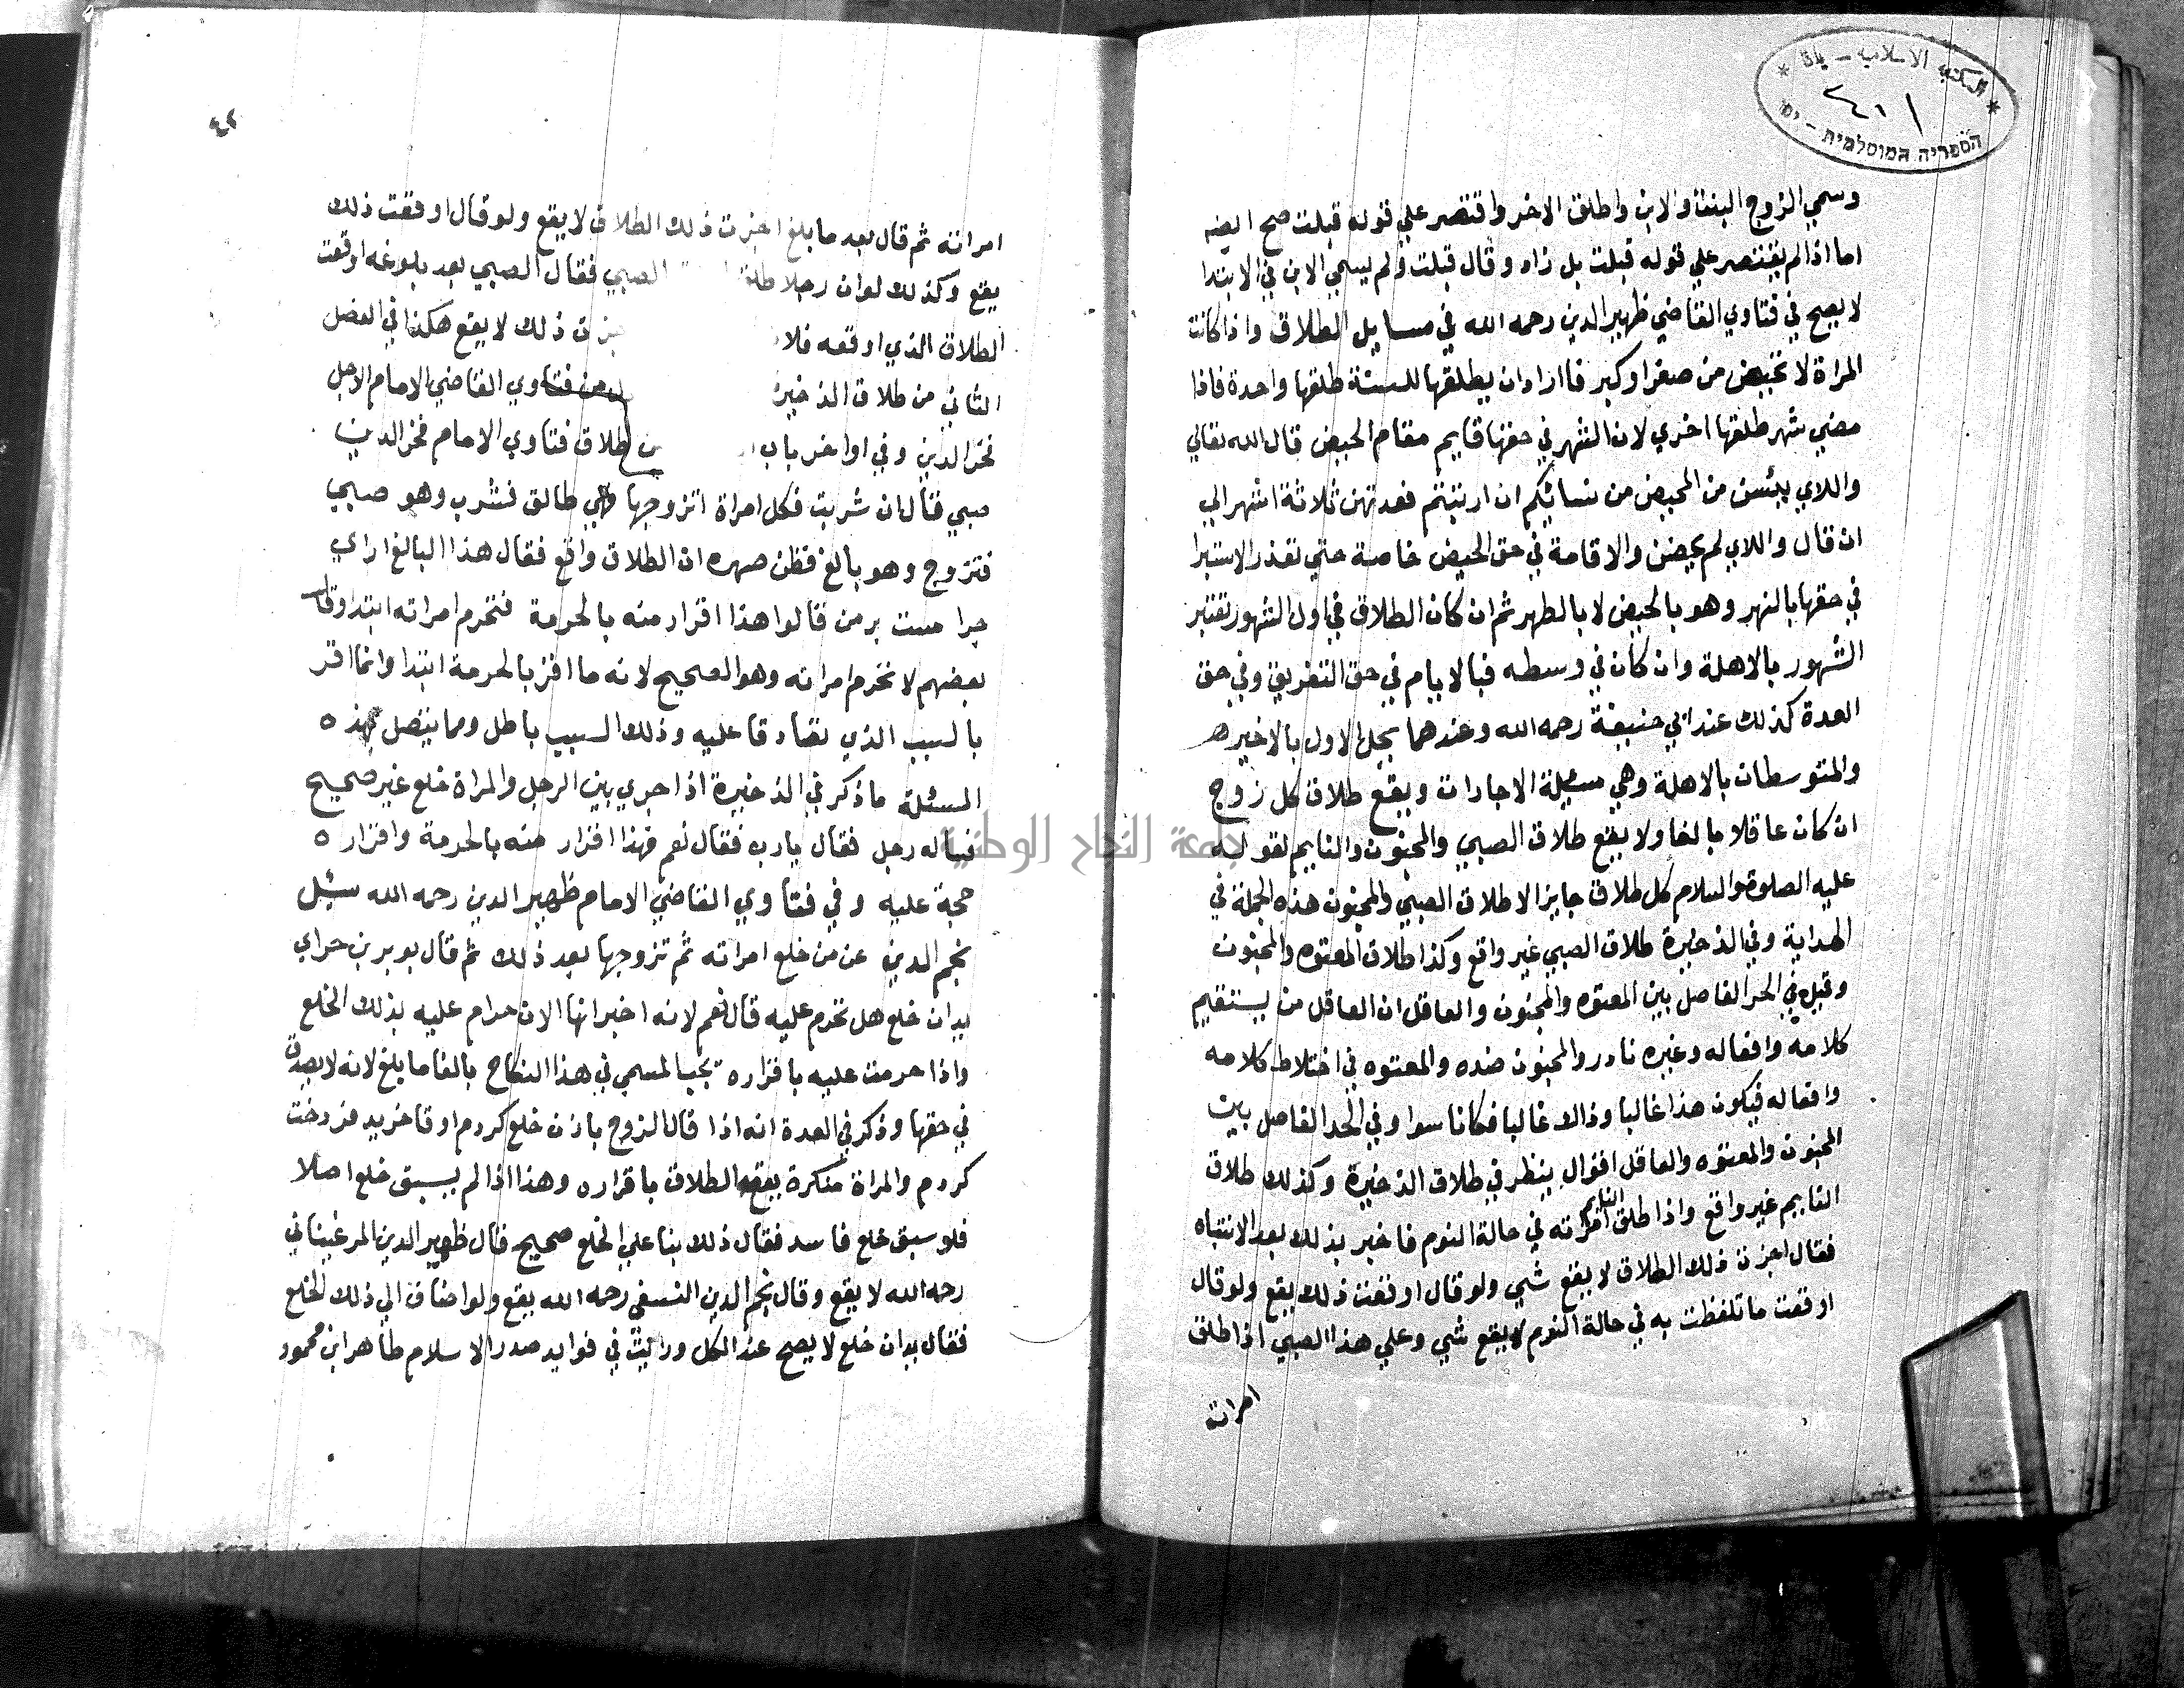 المكتبة الاسلامية – يافا
٢٤٠١
הספריה המוסלמית – יפו
وسمي الزوج البنت والابن واطلق الاخر واقتصر علي قوله قبلت صح ايضا
اما اذا لم يقتصر علي قوله قبلت بل زاد وقال قبلت ولم يسمي الابن في الابتدا
لا يصح في فتاوي القاضي ظهير الدين رحمه الله في مسايل الطلاق واذا كانت
المراة لا تحيض من صغر او كبر فااراد ان يطلقها للسنة طلقها واحدة فاذا
مضي شهر طلقها اخري لان الشهر في حقها قايم مقام الحيض قال الله تعالي
واللاي يئسن من المحيض من نسائكم ان ارتبتم فعدتهن ثلاثة اشهر الي
ان قال واللاي لم يحضن والاقامة في حق الحيض خاصة حتي تقدر الاستبرا
في حقها بالشهر وهو بالحيض لا بالطهر ثم ان كان الطلاق في اول الشهور تعتبر
الشهور بالاهلة وان كان في وسطه فبالايام في حق التفريق وفي حق
العدة كذلك عند ابي حنيفة رحمه الله وعندهما يكمل الاول بالاخير
والمتوسطات بالاهلة وهي مسيلة الاجارات ويقع طلاق كل زوج
ان كان عاقلا بالغا ولا يقع طلاق الصبي والمجنون والنايم لقوله
عليه الصلوة والسلام كل طلاق جايز الا طلاق الصبي والمجنون هذه الجملة في
الهداية وفي الذخيرة طلاق الصبي غير واقع وكذا طلاق المعتوه والمجنون
وقيل في الحد الفاصل بين المعتوه والمجنون والعاقل ان العاقل من يستقيم
كلامه وافعاله وغيره نادر والمجنون ضده والمعتوه في اختلاط كلامه
وافعاله فيكون هذا غالبا وذاك غالبا فكانا سوا وفي الحد الفاصل بين
المجنون والمعتوه والعاقل اقوال ينظر في طلاق الذخيرة وكذلك طلاق
النايم غير واقع واذا طلق النايم امراته في حالة النوم فاخبر بذلك بعد الانتباه
فقال اجزت ذلك الطلاق لا يقع شي ولو قال اوقعت ذلك يقع ولو قال
اوقعت ما تلفظت به في حالة النوم لا يقع شي وعلي هذا الصبي اذا طلق
امراته
٤٢
امراته ثم قال بعد ما بلغ اجزت ذلك الطلاق لا يقع ولو قال اوقعت ذلك
يقع وكذلك لو ان رجلا طلق الصبي فقال الصبي بعد بلوغه اوقعت
الطلاق الذي اوقعه فلان ذلك لا يقع هكذا في الفصل
الثاني من طلاق الذخيرة من فتاوي القاضي الامام الاجل
فخر الدين وفي اواخر باب طلاق فتاوي الامام فخر الدين
صبي قال ان شربت فكل امراة اتزوجها فهي طالق فشرب وهو صبي
فتزوج وهو بالغ فظن صهره ان الطلاق واقع فقال هذا البالغ اراي
حرا مست بر من قالوا هذا اقرار منه بالحرمة فتحرم امراته ابتدا وقال
بعضهم لا تحرم امراته وهو الصحيح لانه ما اقر بالحرمة ابتدا وانما اقر
بالسبب الذي تصادقا عليه وذلك السبب باطل ومما يتصل بهذه
المسئلة ما ذكر في الذخيرة اذا جري بين الرجل والمراة خلع غير صحيح
فساله رجل فقال يارب فقال نعم فهذا اقرار منه بالحرمة واقراره
حجة عليه وفي فتاوي القاضي الامام ظهير الدين رحمه الله سئل
نجم الدين عن من خلع امراته ثم تزوجها بعد ذلك ثم قال بوبر بن حراي
بدان خلع هل تحرم عليه قال نعم لانه اخبر انها الان حرام عليه بذلك الخلع
واذا حرمت عليه باقراره يجب المسمي في هذا النكاح بالغا ما بلغ لانه لا يصدق
في حقها وذكر في العدة انه اذا قال الزوج بازن خلع كردم او قا خريد فردخت
كردم والمراة منكرة يقع الطلاق باقراره وهذا اذا لم يسبق خلع اصلا
فلو سبق خلع فاسد فقال ذلك بنا علي الخلع صحيح قال ظهير الدين المرغيناني
رحمه الله لا يقع وقال نجم الدين النسفي رحمه الله يقع ولو اضاف الي ذلك الخلع
فقال بدان خلع لا يصح عند الكل ورايت في فوايد صدر الاسلام طاهر ابن محمود
جامعة النجاح الوطنية